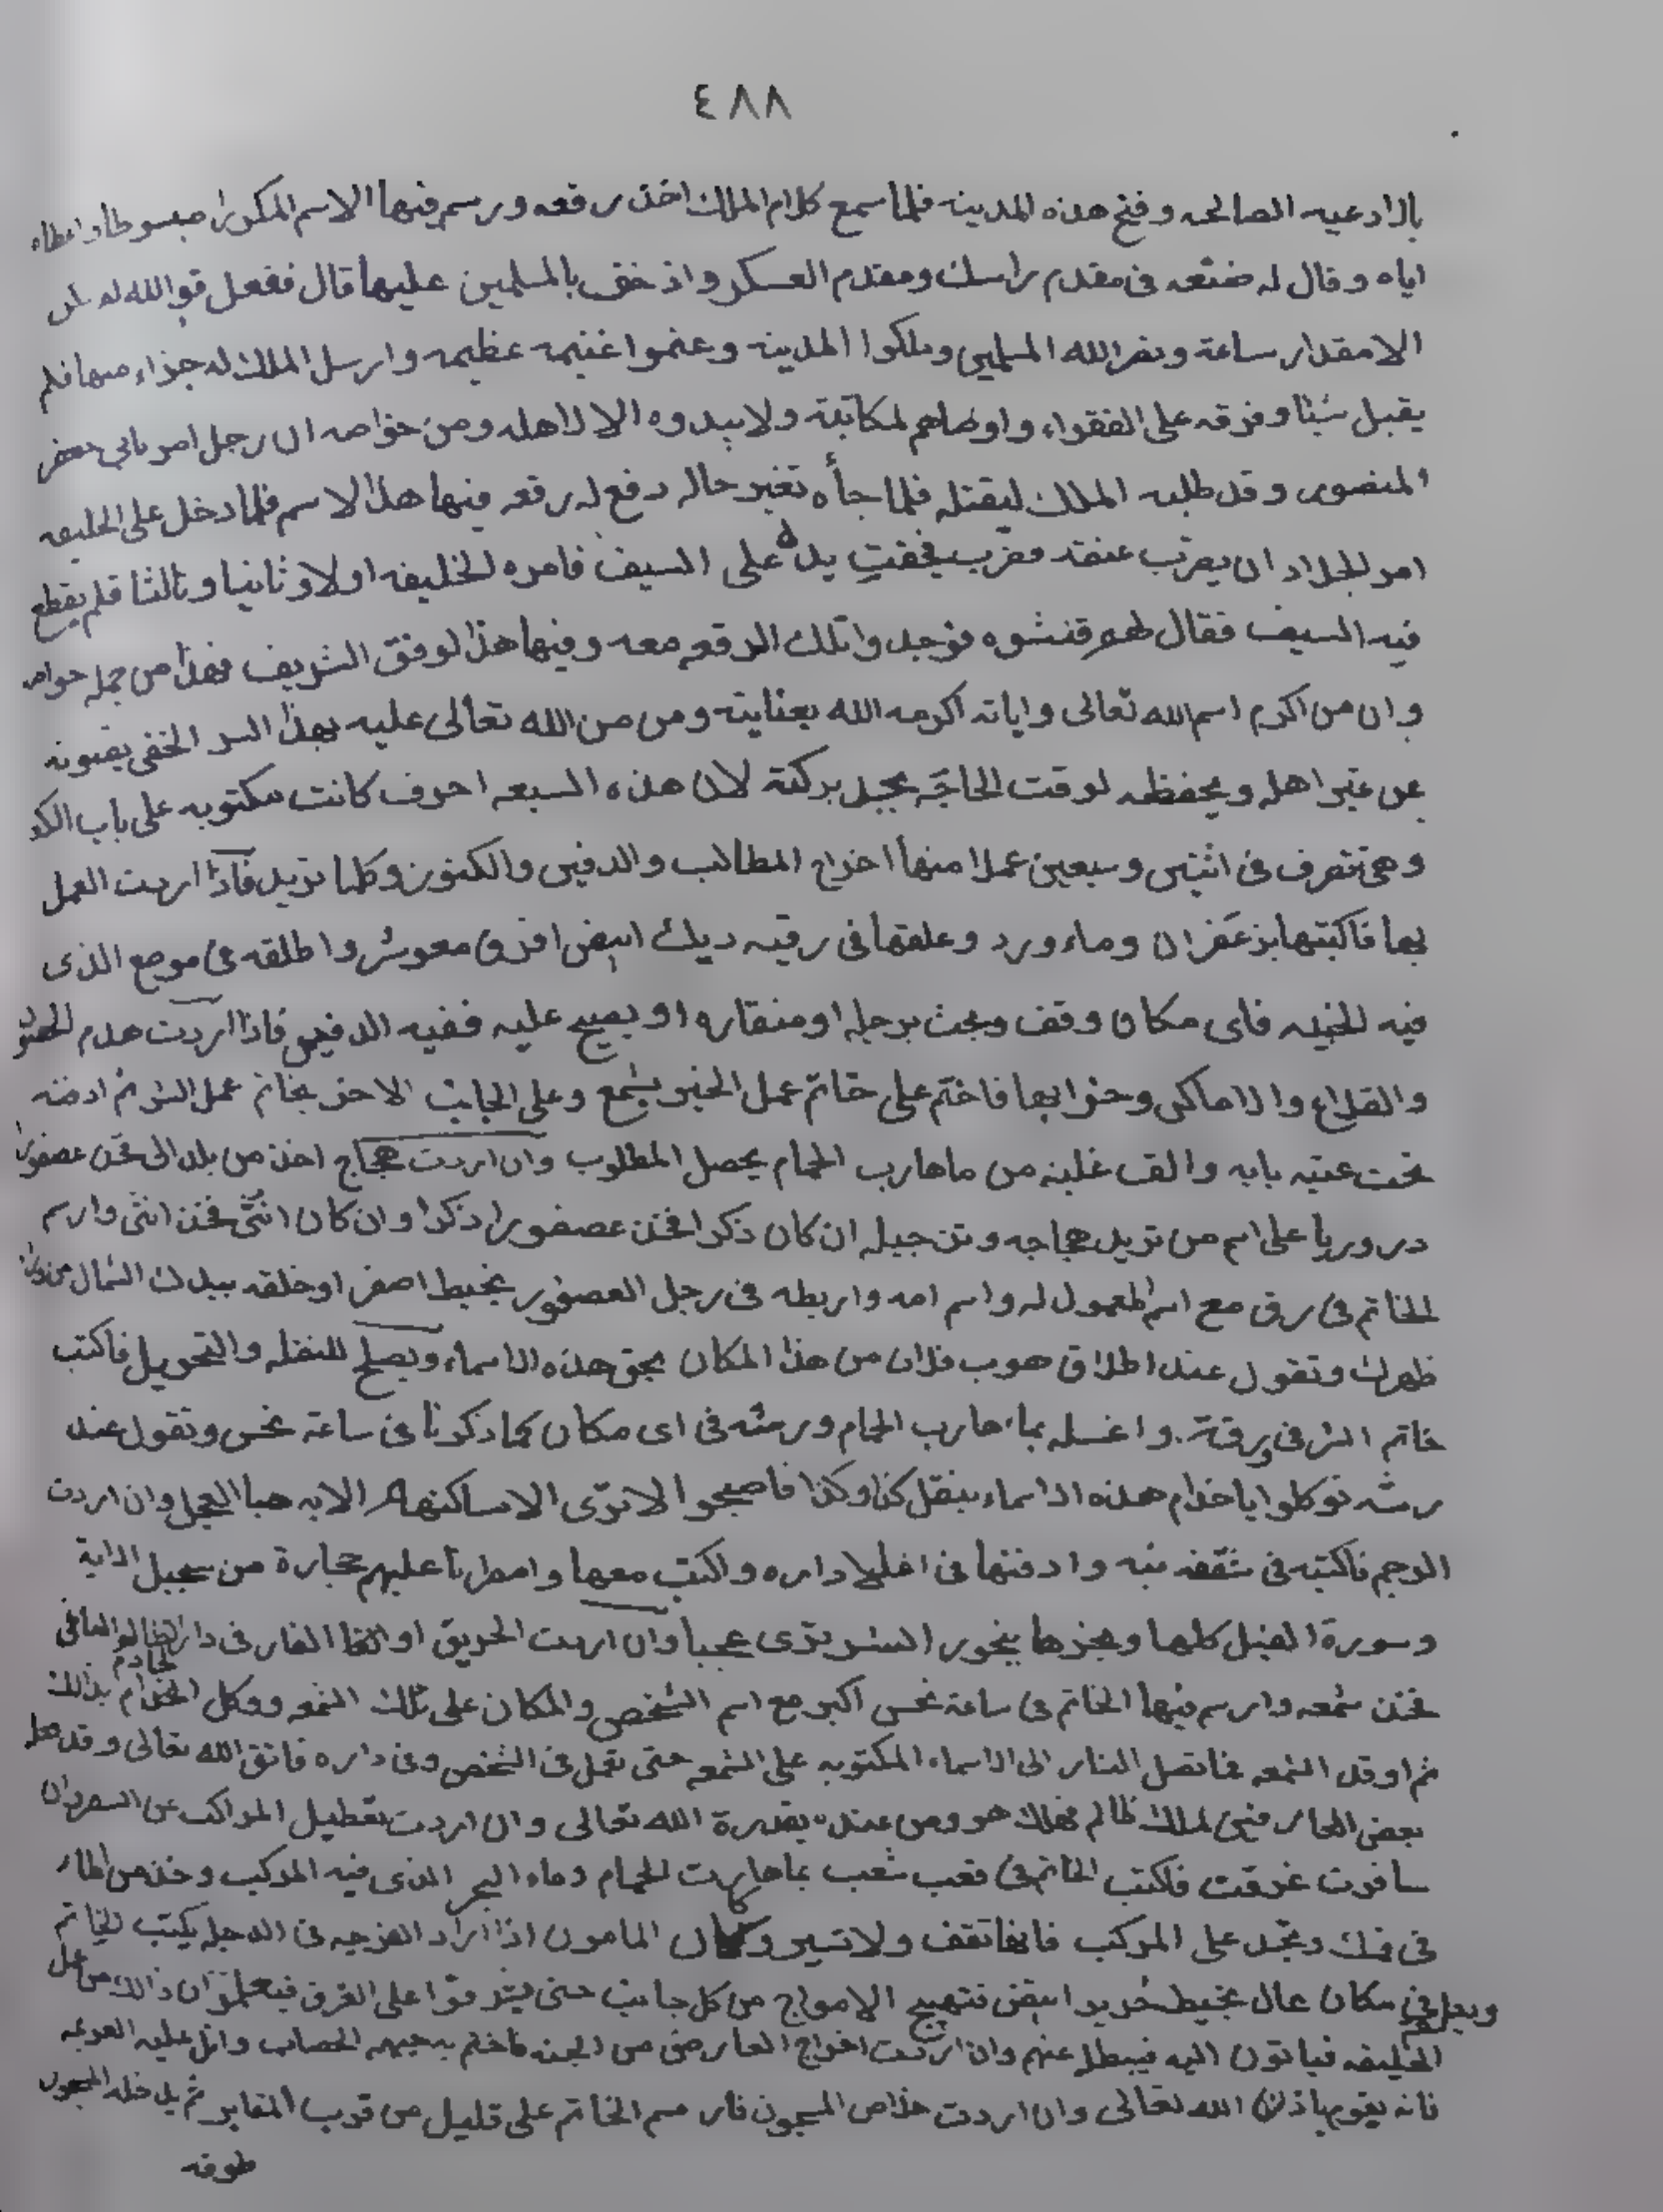 ٤٨٨
بالادعيه الصالحه وفتح هذه المدينه فلما سمع كلام الملك اخذ رقعه ورسم فيها الاسم المكور مبسوطا واعطاه
اياه وقال له ضعه فى مقدم راسك ومقدم العسكر واذ خف بالمسلمين عليها قال ففعل فوالله لم
الا مقدار ساعة ونصر الله المسلمين وملكوا المدينه وغنموا غنيمه عظيمه وارسل الملك له جزاء منها فلم
يقبل شيئا وفرقه على الفقراء واوصاهم لمكاتبة ولا يبدوه الا لاهله ومن خواصه ان رجل امر بابى جعفر
المنصور وقد طلبه الملك ليقتله فلما جأه تغير حاله دفع له رقعه فيها هذا الاسم فلما دخل على الخليفه
امر الجلاد ان يضرب عنقه فضرب فخفت يده على السيف فامره الخليفه اولا وثانيا وثالثا فلم يقطع
فيه السيف فقال لهم فتشوه فوجدوا تلك الرقعه معه وفيها هذا الوفق الشريف فهذا من جمله خواصه
وان من اكرم اسم الله تعالى واياته اكرمه الله بعنايته ومن من الله تعالى عليه بهذا السر الخفى يصونه
عن غير اهله ويحفظه لوقت الحاجة يجد بركتة لان هذه السبعه احرف كانت مكتوبه على باب
وهى تتصرف فى اثنين وسبعين عملا منها اخراج المطالب والدفين والكنوز وكلما تريد فاذا اردت العمل
بها فاكتبها بزعفران وماء ورد وعلقها فى رقبه ديك ابيض افرق معوشر واطلقه فى موضع الذى
فيه الخبيه فاى مكان وقف وبحث برجله او منقاره او يصيح عليه ففيه الدفين فاذا اردت هدم الحصون
والقلاع والاماكن وخرابها فاختم على خاتم عمل الخير بشمع وعلى الجانب الاخر بخاتم عمل الشر ثم ادفنه
تحت عتبه بابه والق غلبه من ماهارب الحمام يحصل المطلوب وان اردت هججاج احد من بلد الى فخذ عصفورا
دروريا على اسم من تريد هجاجه وتن جيله ان كان ذكرا فخذ عصفورا ذكرا وان كان انثى فخذ انثى وارسم
الخاتم فى رق مع اسم المعمول له واسم امه واربطه فى رجل العصفور بخيط اصفر او خلقه بيدك الشمال من وراء
ظهرك وتقول عند اطلاق هرب فلان من هذا المكان بحق هذه الاسماء ويصلح للنقله والتحويل فاكتب
خاتم الشر فى ورقة واغسله بماء هارب الحمام ورشه فى اى مكان كما ذكرنا فى ساعة نحس وتقول عند
رشه توكلوا يا خدام هذه الاسماء بنقل كذا وكذا فاصبحوا لا ترى الا مساكنهم الايه هبا العجل وان اردت
الرجم فاكتبه فى شقفه نيه وادفنها فى اعلى داره واكتب معها وامطرنا عليهم حجارة من سجيل الاية
وسورة الفيل كلها وبخرها ببخور الشر ترى عجبا وان اردت الحريق او القا النار فى دار الظالم
فخذ شمعه وارسم فيها الخاتم فى ساعة نحس اكبر مع اسم الشخص والمكان على تلك الشمعه ووكل الخدام بذالك
ثم اوقد الشمعه فما تصل النار الى الاسماء المكتوبه على الشمعه حتى تعمل فى الشخص وفى داره فاتق الله تعالى وقد عمله
بعض فى ملك ظالم فهلك هو ومن عنده بقدرة الله تعالى وان اردت تعطيل المراكب عن السفر وان
سافرت غرقت فاكتب الخاتم فى قعب شعب بماهارب الحمام وماء البحر الذى فيه المركب وخذ من
فى فمك ومجه على المركب فانها تقف ولا تسير وكان المامون اذا اراد الفرجه فى الدجله يكتب الخاتم
ويعلقه فى مكان عال بخيط حرير ابيض فتهيج الامواج من كل جانب حتى يشرفوا على الغرق فيعلمو ان ذالك من عمل
الخليفه فياتون اليه فيبطل عنهم وان اردت اخراج العارض من الجثه فاختم به جبهه المصاب واتل عليه العزيمه
فانه يقوم باذن الله تعالى وان اردت خلاص المسجون فارسم الخاتم على قليل من قرب المقابر ثم يدخله المسجون
طوقه